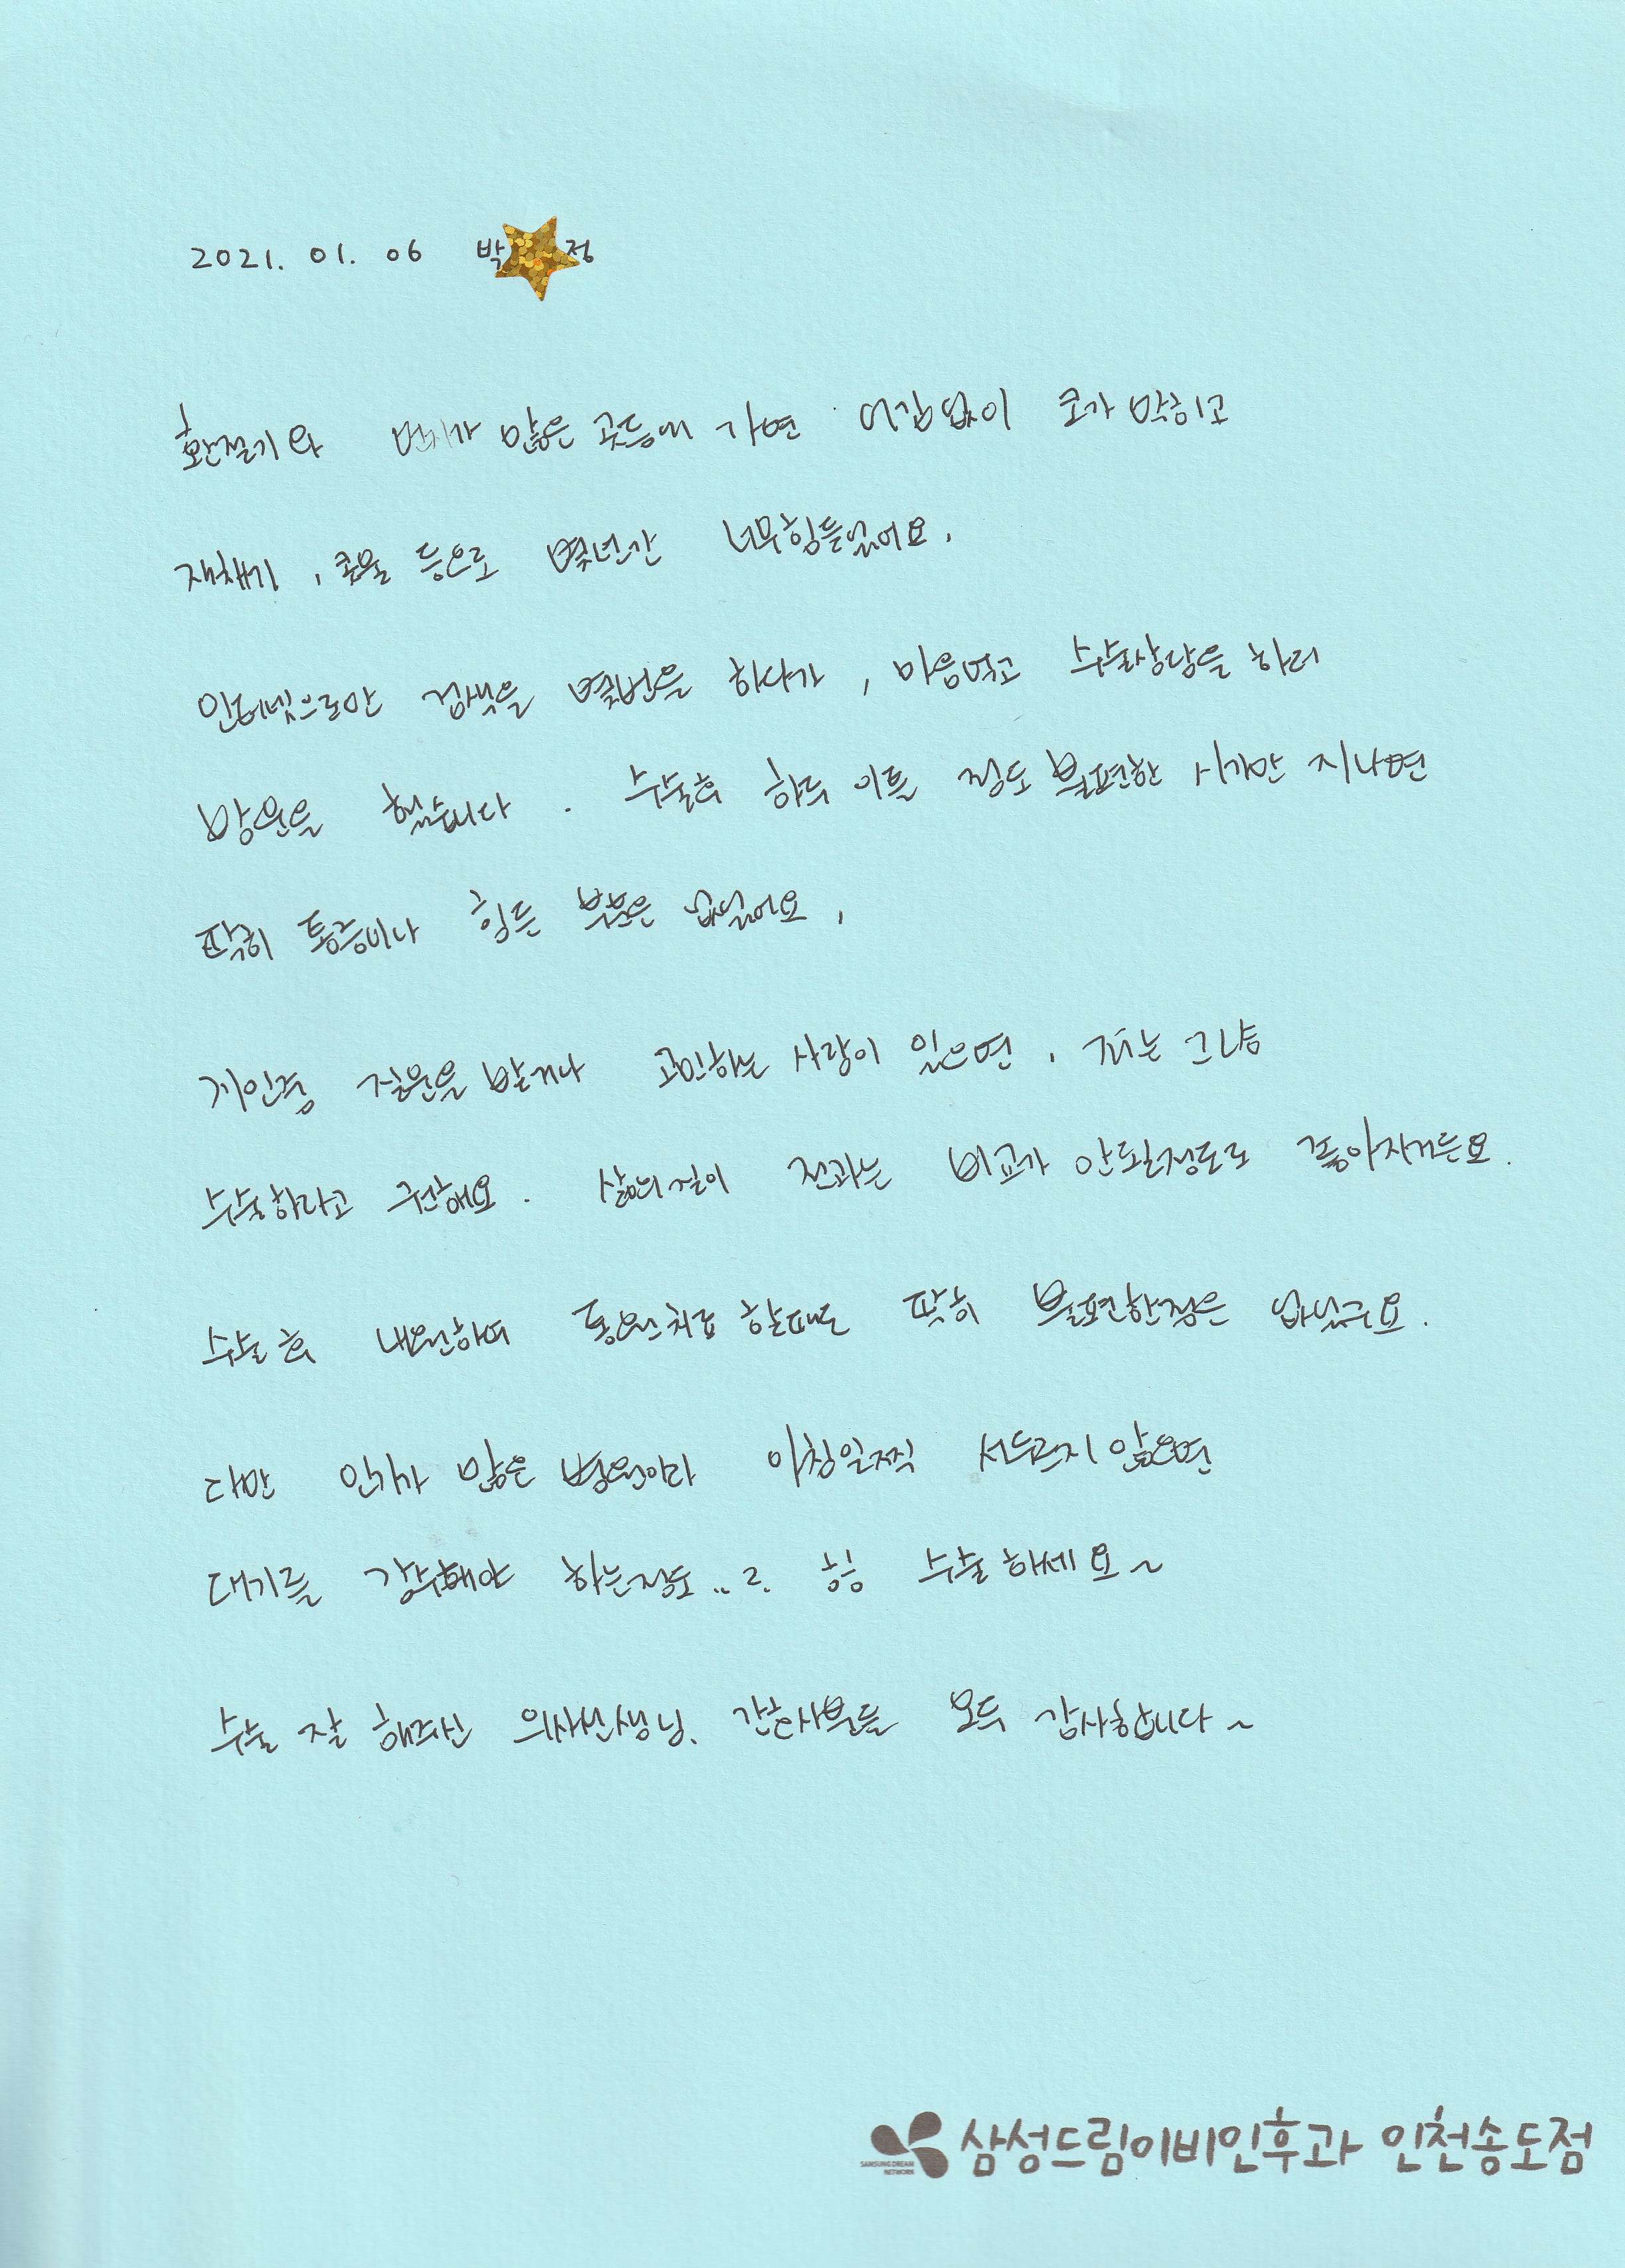 2021. 01. 06 박 정
환절기와 먼지가 많은 곳등에 가면 어김없이 코가 막히고
재채기, 콧물 등으로 몇년간 너무힘들었어요.
인터넷으로만 검색을 몇번을 하다가, 마음먹고 수술상담을 하러
방문을 했습니다. 수술후 하루 이틀 정도 불편한 시기만 지나면
딱히 통증이나 힘든 부분은 없었어요.
게인적 질문을 받거나 고민하는 사람이 있으면, 저는 그냥
수술하라고 권해요. 삶의질이 전과는 비교가 안될정도로 좋아지거든요.
수술 후 내원하여 통원치료 할때도 딱히 불편한점은 없었구요.
다만 인기가 많은 병원이라 아침일찍 서두르지 않으면
대기를 감수해야 하는정도..?. ㅎㅎ 수술하세요~
수술 잘 해주신 의사선생님. 간호사분들 모두 감사합니다~
SAMSUNG DREAM NETWORK
삼성드림이비인후과 인천송도점